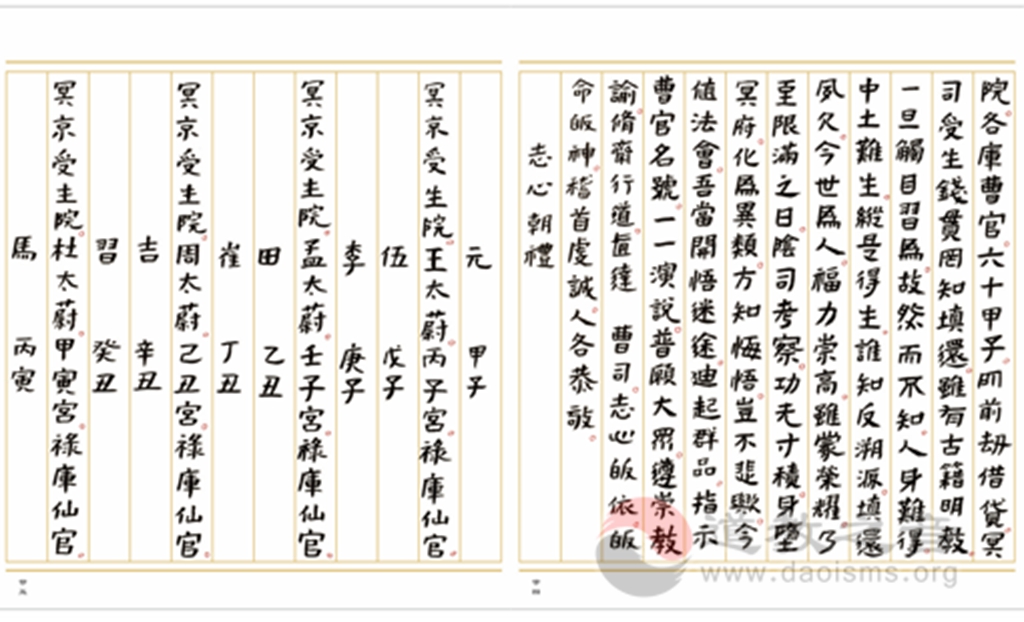 院各庫曹官六十甲子而前劫借貸冥
司受生錢貫罔知填還雖有古籍明教
一旦觸目習為故然而不知人身難得
中土難生縱是得生誰知反溯源填還
夙欠今世為人福力崇高雖蒙榮耀乃
至限滿之日陰司考察功无寸積身墮
冥府化為異類方知悔悟豈不悲歟今
值法會吾當開悟迷途迪起群品指示
曹官名號一一演說普願大眾遵崇教
諭脩齋行道直達 曹司志心皈依皈
命皈神稽首虔誠人各恭敬
志心朝禮
元 甲子
冥京受生院王太蔚丙子宮祿庫仙官
伍 戊子
李 庚子
冥京受主院孟太蔚壬子宮祿庫仙官
田 乙丑
崔 丁丑
冥京受主院周太蔚己丑宮祿庫仙官
吉 辛丑
習 癸丑
冥京受主院杜太蔚甲寅宮祿庫仙官
馬 丙寅
道教之音
www.daoisms.org